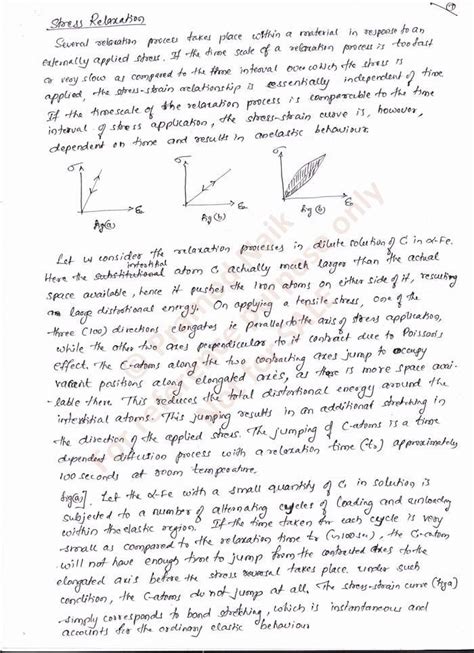 Stress Relaxation
Several relaxation process takes place within a material in response to an
externally applied stress. If the time scale of a relaxation process is too fast
or very slow as compared to the time interval over which the stress is
applied, the stress-strain relationship is essentially independent of time
If the timescale of the relaxation process is comparable to the time
interval of stress application, the stress-strain curve is, however,
dependent on time and results in anelastic behaviour.
σ σ σ
ε ε ε
fig(a) fig(b) fig(b)
Let us consider the relaxation processes in dilute solution of C in α-Fe.
interstitial
Here the substitutional atom C actually much larger than the actual
space available, hence it pushes the iron atoms on either side of it, resulting
large distortional energy. On applying a tensile stress, one of the
three (100) directions elongates ie parallel to the axis of stress application,
while the other two axes perpendicular to it contract due to Poissons
effect. The C-atoms along the two contracting axes jump to occupy
vacant positions along elongated axes, as there is more space avai-
lable there. This reduces the total distortional energy around the
interstitial atoms. This jumping results in an additional stretching in
the direction of the applied stress. The jumping of C-atoms is a time
dependent diffusion process with a relaxation time (tr) approximately
100 seconds at room temperature.
fig(a)]. Let the α-Fe with a small quantity of C in solution is
subjected to a number of alternating cycles of loading and unloading
within the elastic region. If the time taken for each cycle is very
small as compared to the relaxation time tr (≈100s), the C-atom
will not have enough time to jump from the contracted axes to the
elongated axis before the stress reversal takes place. under such
condition, the C-atoms do not jump at all. The stress-strain curve (fig a)
simply corresponds to bond stretching, which is instantaneous and
accounts for the ordinary elastic behaviour